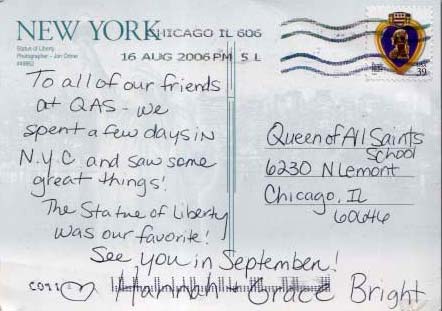 NEW YORK
Statue of Liberty
CHICAGO IL 606
16 AUG 2006 PM 5 L
39
To all of our friends
at QAS - we
spent a few days in
N.Y.C. and saw some
great things!
The Statue of Liberty
was our favorite!
See you in September!
Hannah + Grace Bright
Queen of All Saints
School
6230 N Lemont
Chicago, IL
60646